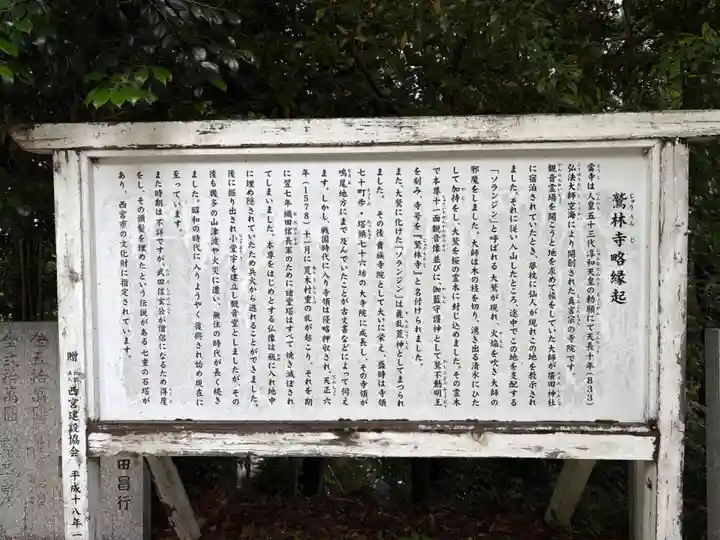 鷲林寺略縁起
當寺は人皇五十三代淳和天皇の勅願にて天長十年(833)
弘法大師空海により開創された真言宗の寺院です。
観音霊場を開こうと地を求めて旅をしていた大師が廣田神社
に宿泊されていたとき、夢枕に仙人が現れこの地を教示され
ました。それに従い入山したところ、途中でこの地を支配する
「ソランジン」と呼ばれる大鷲が現れ、火焔を吹き大師の
邪魔をしました。大師は木の枝を切り、湧き出る清水にひた
して加持をし、大鷲を桜の霊木に封じ込めました。その霊木
で本尊十一面観音像並びに、伽藍守護神として鷲不動明王
を刻み、寺号を「鷲林寺」と名付けられました。
また、大鷲に化けた「ソランジン」は麁乱荒神としてまつられ
ました。 その後、貴族寺院として大いに栄え、盛時は寺領
七十町歩・塔頭七十六坊の大寺院に成長し、その寺領が
鳴尾地方にまで及んでいたことが古文書などによって伺え
ます。しかし、戦国時代に入り寺領は侵略押収され、天正六
年(1578)十二月に荒木村重の乱が起こり、それを期
に翌七年織田信長軍のために諸堂塔はすべて焼き滅ぼされ
てしまいました。本尊をはじめとする仏像は瓶に入れ地中
に埋め隠されていたため兵火から逃れることができました。
後に掘り出され小堂宇を建立し観音堂としましたが、その
後も幾多の山津波や火災に遭い、無住の時代が長く続き
ました。昭和の時代に入りようやく復興され始め現在に
至っています。
また時期は不詳ですが、武田信玄公が僧侶になるため得度
をし、その頭髪を埋めたという伝説がある七重の石塔が
あり、西宮市の文化財に指定されています。
贈 西宮建設協会 平成十八年一
金五拾萬圓
金五拾萬圓
田昌行